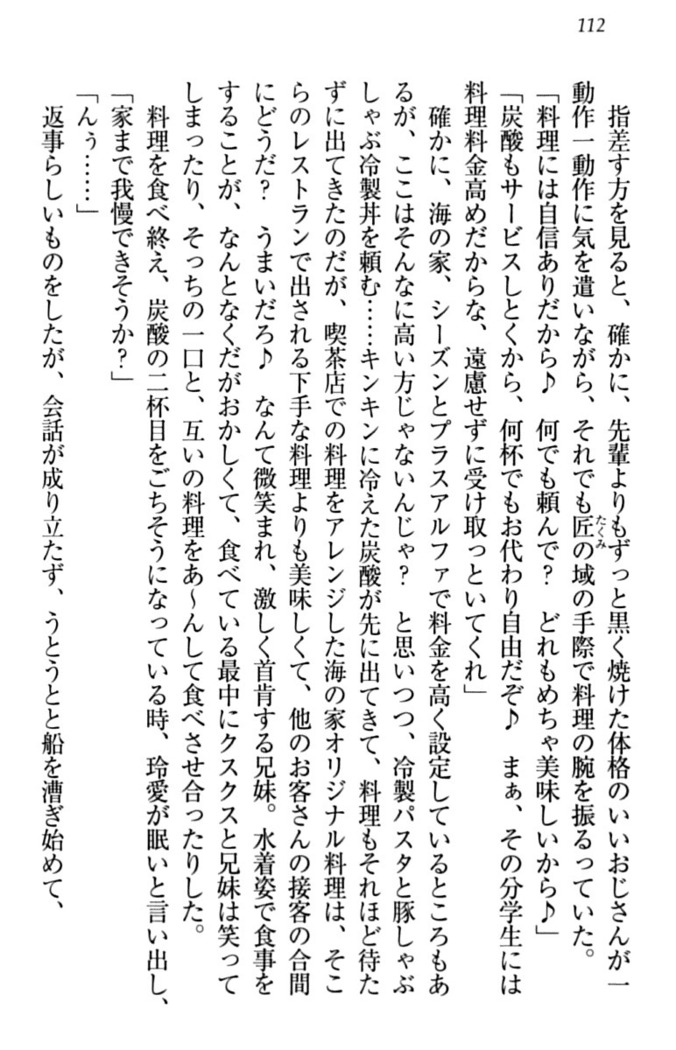 112
指差す方を見ると、確かに、先輩よりもずっと黒く焼けた体格のいいおじさんが一
動作一動作に気を遣いながら、それでも匠の域の手際で料理の腕を振るっていた。
たくみ
「料理には自信ありだから♪　何でも頼んで？　どれもめちゃ美味しいから♪」
「炭酸もサービスしとくから、何杯でもお代わり自由だぞ♪　まぁ、その分学生には
料理料金高めだからな、遠慮せずに受け取っといてくれ」
確かに、海の家、シーズンとプラスアルファで料金を高く設定しているところもあ
るが、ここはそんなに高い方じゃないんじゃ？　と思いつつ、冷製パスタと豚しゃぶ
しゃぶ冷製丼を頼む……キンキンに冷えた炭酸が先に出てきて、料理もそれほど待た
ずに出てきたのだが、喫茶店での料理をアレンジした海の家オリジナル料理は、そこ
らのレストランで出される下手な料理よりも美味しくて、他のお客さんの接客の合間
にどうだ？　うまいだろ♪　なんて微笑まれ、激しく首肯する兄妹。水着姿で食事を
することが、なんとなくだがおかしくて、食べている最中にクスクスと兄妹は笑って
しまったり、そっちの一口と、互いの料理をあ～んして食べさせ合ったりした。
料理を食べ終え、炭酸の二杯目をごちそうになっている時、玲愛が眠いと言い出し、
「家まで我慢できそうか？」
「んぅ……」
返事らしいものをしたが、会話が成り立たず、うとうとと船を漕ぎ始めて、